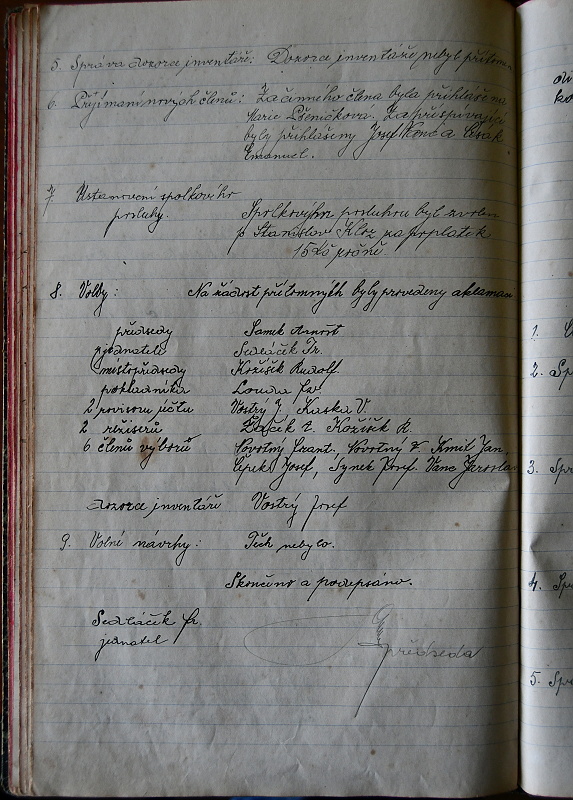 5. Správa dozorce inventáře: Dozorce inventáře nebyl přítomen
6. Přijímaní nových členů: Za činného člena byla přihlašena
Marie Pšeničkova. Za přispívající
byly přihlašeny Josef Vonc a Cesák
Emanuel.
7. Ustanovení spolkového
posluhy. Spolkovým posluhou byl zvolen
p Stanislav Kloz za poplatek
15 Kč ročně
8. Volby: Na žádost přítomných byly provedeny aklamací
předsedy Samek Arnošt
jednatele Sedláček Fr.
místopředsedy Kožíšek Rudolf.
pokladníka Louda Fr
2 revisoru účtu Vostrý J. Kaska V.
2 režiserů Zajíček E. Kožíšek R.
6 členů výborů Novotný Frant. Novotný V. Kmil Jan,
Čipek Josef, Týnek Josef. Vanc Jaroslav
dozorce inventáře Vostrý Josef
9. Volné návrhy: Těch nebylo.
Skončeno a podepsáno.
Sedláček Fr.
jednatel předseda
1.
2. Sp
3. Spr
4. Spr
5. Spr